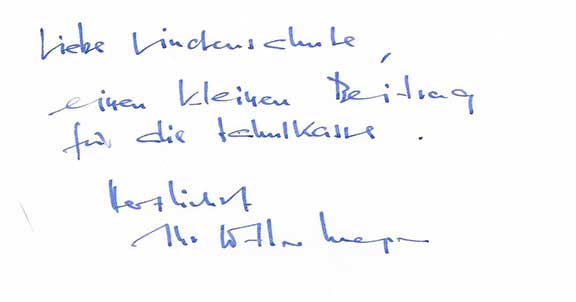 Liebe Lindenschule,
einen kleinen Beitrag
für die Schulkasse.
Herzlichst
Ihr